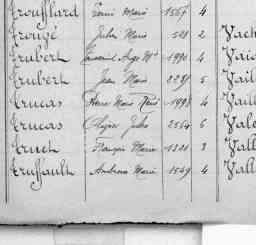 Trouffard Louis Marie 1567 4
Trougé Julien Marie 508 2 Vach
Trubert 1990 4 Vais
Trubert Jean Marie 2285 5 Vail
Trucas Pierre Marie 1998 4 Vaill
Trucas Jules 2564 6 Vale
Truet François Marie 1321 3 Vall
Truffault Ambroise Marie 1549 4 Vall